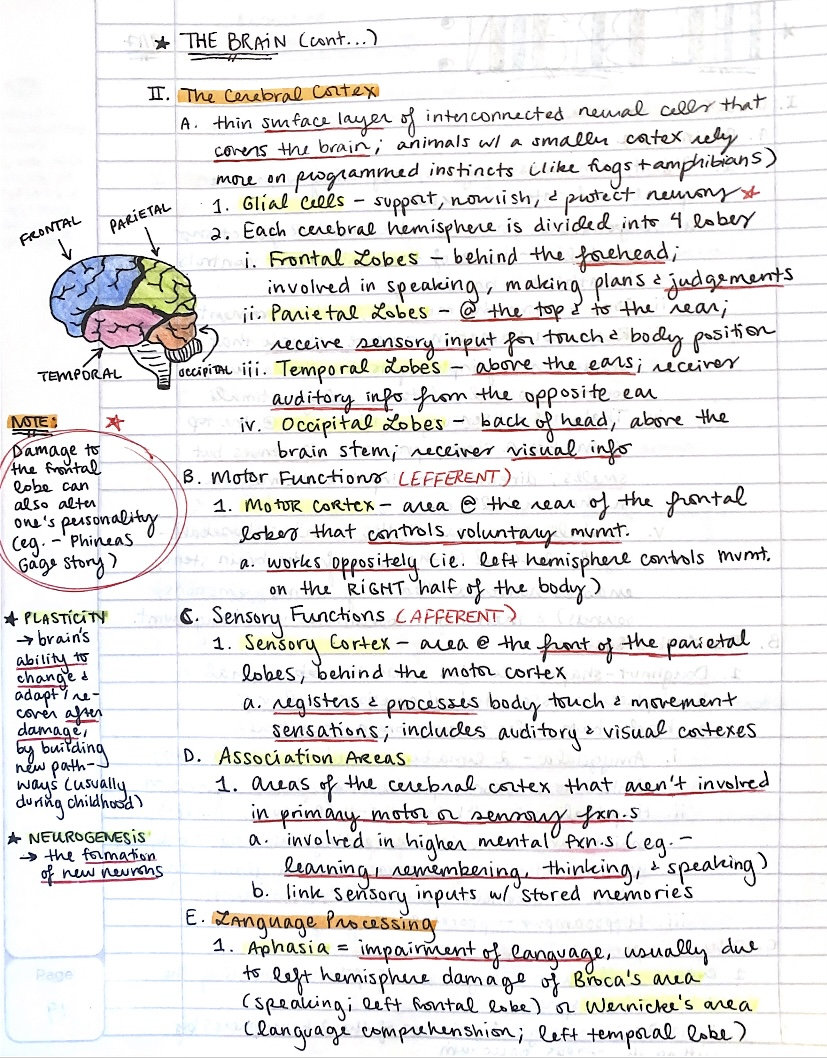 ★ THE BRAIN (cont...)
II. The Cerebral Cortex
A. thin surface layer of interconnected neural cells that
covers the brain; animals w/ a smaller cortex rely
more on programmed instincts (like frogs + amphibians)
1. Glial Cells – support, nourish, & protect neurons ★
2. Each cerebral hemisphere is divided into 4 lobes
i. Frontal Lobes – behind the forehead;
involved in speaking, making plans & judgements
ii. Parietal Lobes – @ the top & to the rear;
receive sensory input for touch & body position
iii. Temporal Lobes – above the ears; receives
auditory info from the opposite ear
iv. Occipital Lobes – back of head, above the
brain stem; receives visual info
B. Motor Functions (EFFERENT)
1. Motor Cortex – area @ the rear of the frontal
lobes that controls voluntary mvmt.
a. works oppositely (ie. left hemisphere controls mvmt.
on the RIGHT half of the body)
C. Sensory Functions (AFFERENT)
1. Sensory Cortex – area @ the front of the parietal
lobes, behind the motor cortex
a. registers & processes body touch & movement
sensations; includes auditory & visual cortexes
D. Association Areas
1. areas of the cerebral cortex that aren't involved
in primary motor or sensory fxn.s
a. involved in higher mental fxn.s (eg. –
learning, remembering, thinking, & speaking)
b. link sensory inputs w/ stored memories
E. Language Processing
1. Aphasia = impairment of language, usually due
to left hemisphere damage of Broca's area
(speaking; left frontal lobe) or Wernicke's area
(language comprehenshion; left temporal lobe)
FRONTAL
PARIETAL
TEMPORAL
OCCIPITAL
NOTE: ★
Damage to
the frontal
lobe can
also alter
one's personality
(eg. – Phineas
Gage story)
★ PLASTICITY
→ brain's
ability to
change &
adapt/re-
cover after
damage,
by building
new path-
ways (usually
during childhood)
★ NEUROGENESIS
→ the formation
of new neurons
Page